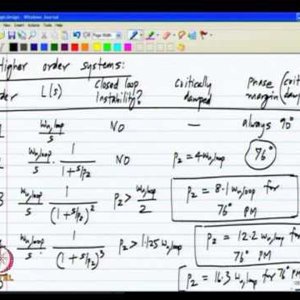 design - Windows Journal
Higher order systems:
L(s) closed loop instability? critically damped phase margin (criti damp
ω_u,loop/s NO — always 90°
ω_u,loop/s · 1/(1+s/p₂) NO p₂ = 4ω_u,loop 76°
3 ω_u,loop/s · 1/(1+s/p₂)² p₂ > ω_u,loop/2 p₂ = 8.1 ω_u,loop for 76° PM
ω_u,loop/s · 1/(1+s/p₂)³ p₂ > 1.125 ω_u,loop p₂ = 12.2 ω_u,loop for 76° PM
p₂ = 16.3 ω_u,loop for 76° PM